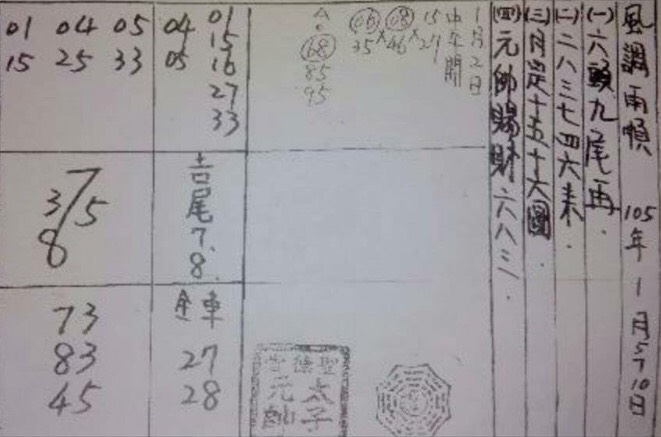 風調雨順 105年1月5/10日
(一)六頭九尾再.
(二)二八三七四六来.
(三)月是十五十六圓
(四)元帥賜財六八三.
1月2日
中午開
15 08 06
27 × 46 × 35
A
68
85
95
01 04 05
15 25 33
04 01
15
05 16
27
33
7
3/5
8
吉尾7.8.
73
83
45
金車
27
28
聖德堂
太子元帥